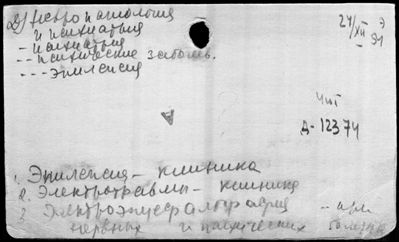 и психиатрия
- психиатрия
-- психические забол.
--- эпилепсия
24/XII Э
- 91
чит
Д-12374
1. Эпилепсия - клиника
2. Электротравмы - клиника
3. Электроэнцефалография - при
нервных и психических болезнях